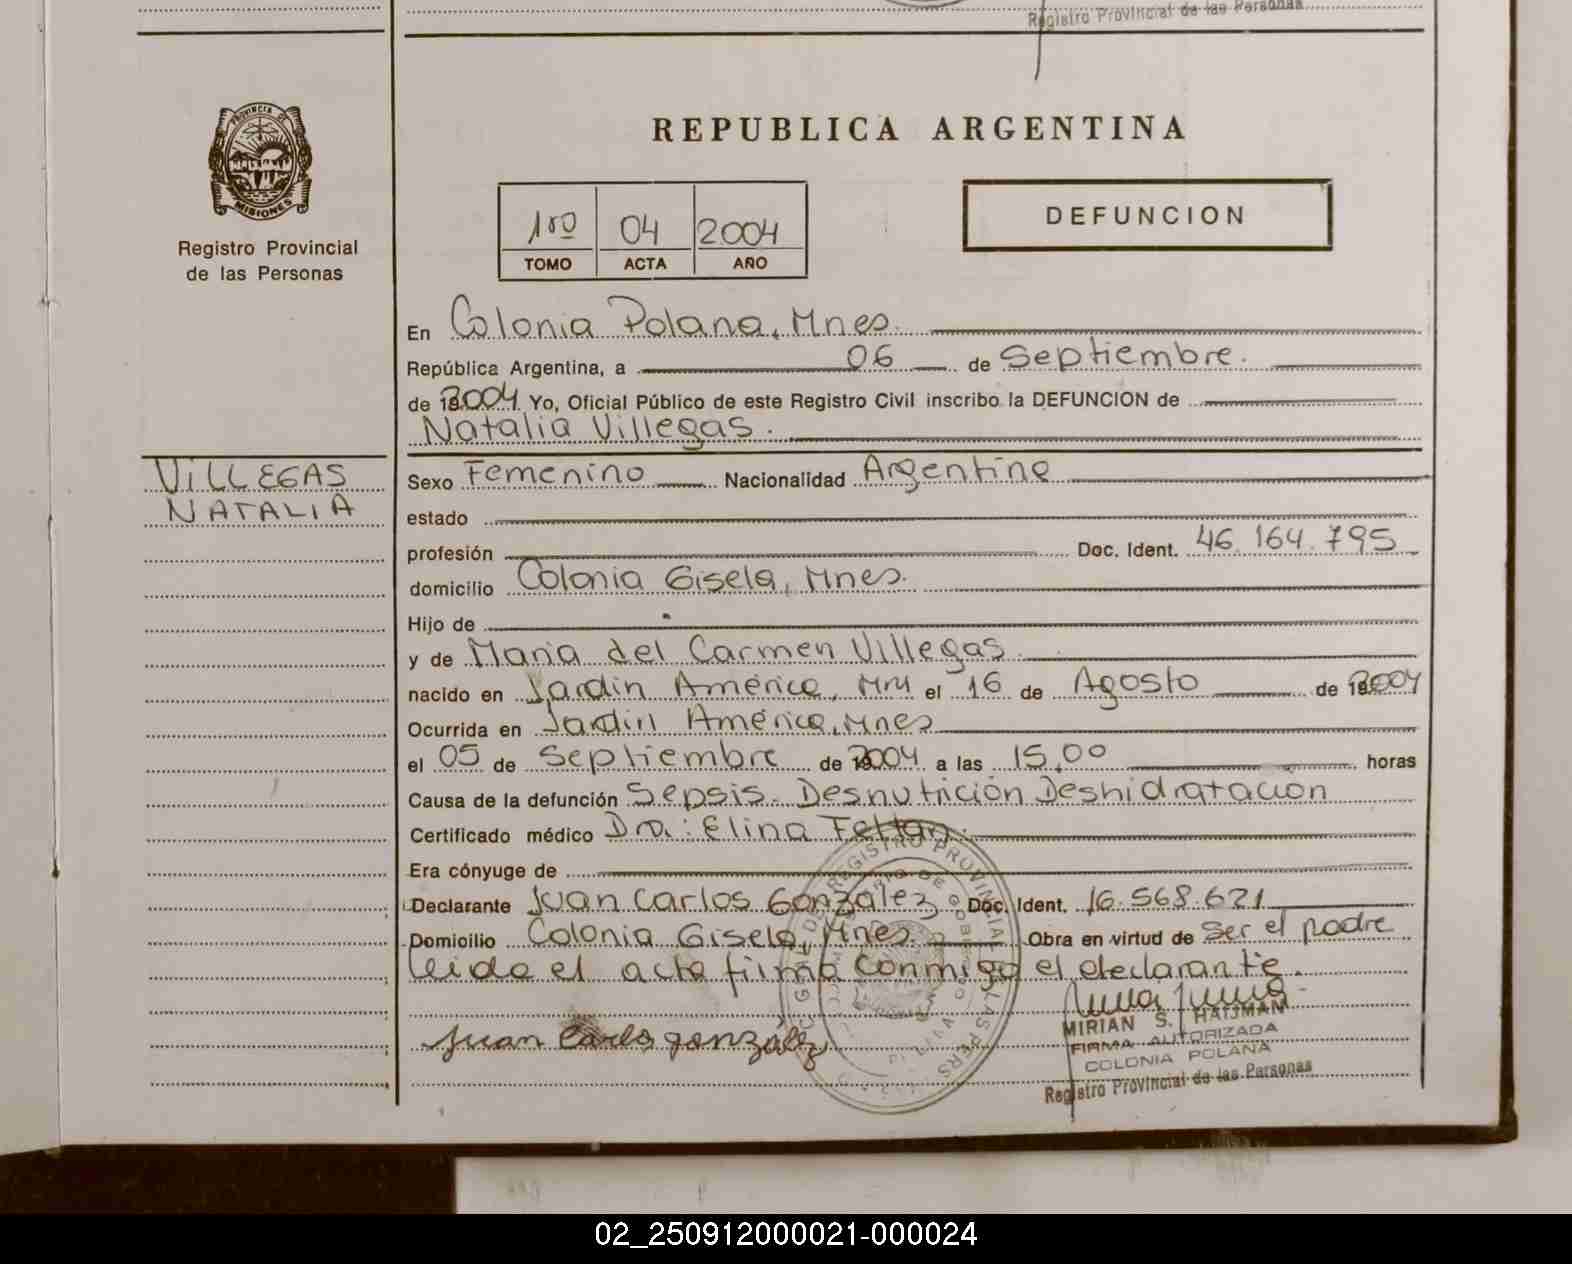 Registro Provincial de las Personas
PROVINCIA DE
MISIONES
Registro Provincial
de las Personas
REPUBLICA ARGENTINA
1º 04 2004
TOMO ACTA AÑO
DEFUNCION
En Colonia Polana, Mnes.
República Argentina, a 06 de Septiembre.
de 2004 Yo, Oficial Público de este Registro Civil inscribo la DEFUNCION de
Natalia Villegas.
VILLEGAS
NATALIA
Sexo Femenino Nacionalidad Argentina
estado
profesión Doc. Ident. 46.164.795
domicilio Colonia Gisela, Mnes.
Hijo de
y de Maria del Carmen Villegas
nacido en Jardin América, el 16 de Agosto de 2004
Ocurrida en Jardin América, Mnes
el 05 de Septiembre de 2004 a las 15,00 horas
Causa de la defunción Sepsis. Desnutrición Deshidratación
Certificado médico Dra: Elina
Era cónyuge de
Declarante Juan Carlos González Doc. Ident. 16.568.621
Domicilio Colonia Gisela, Mnes. Obra en virtud de ser el padre
leida el acta firma conmigo el declarante.
Juan Carlos gonzález
MIRIAN S. HAIJMAN
FIRMA AUTORIZADA
COLONIA POLANA
Registro Provincial de las Personas
02_250912000021-000024